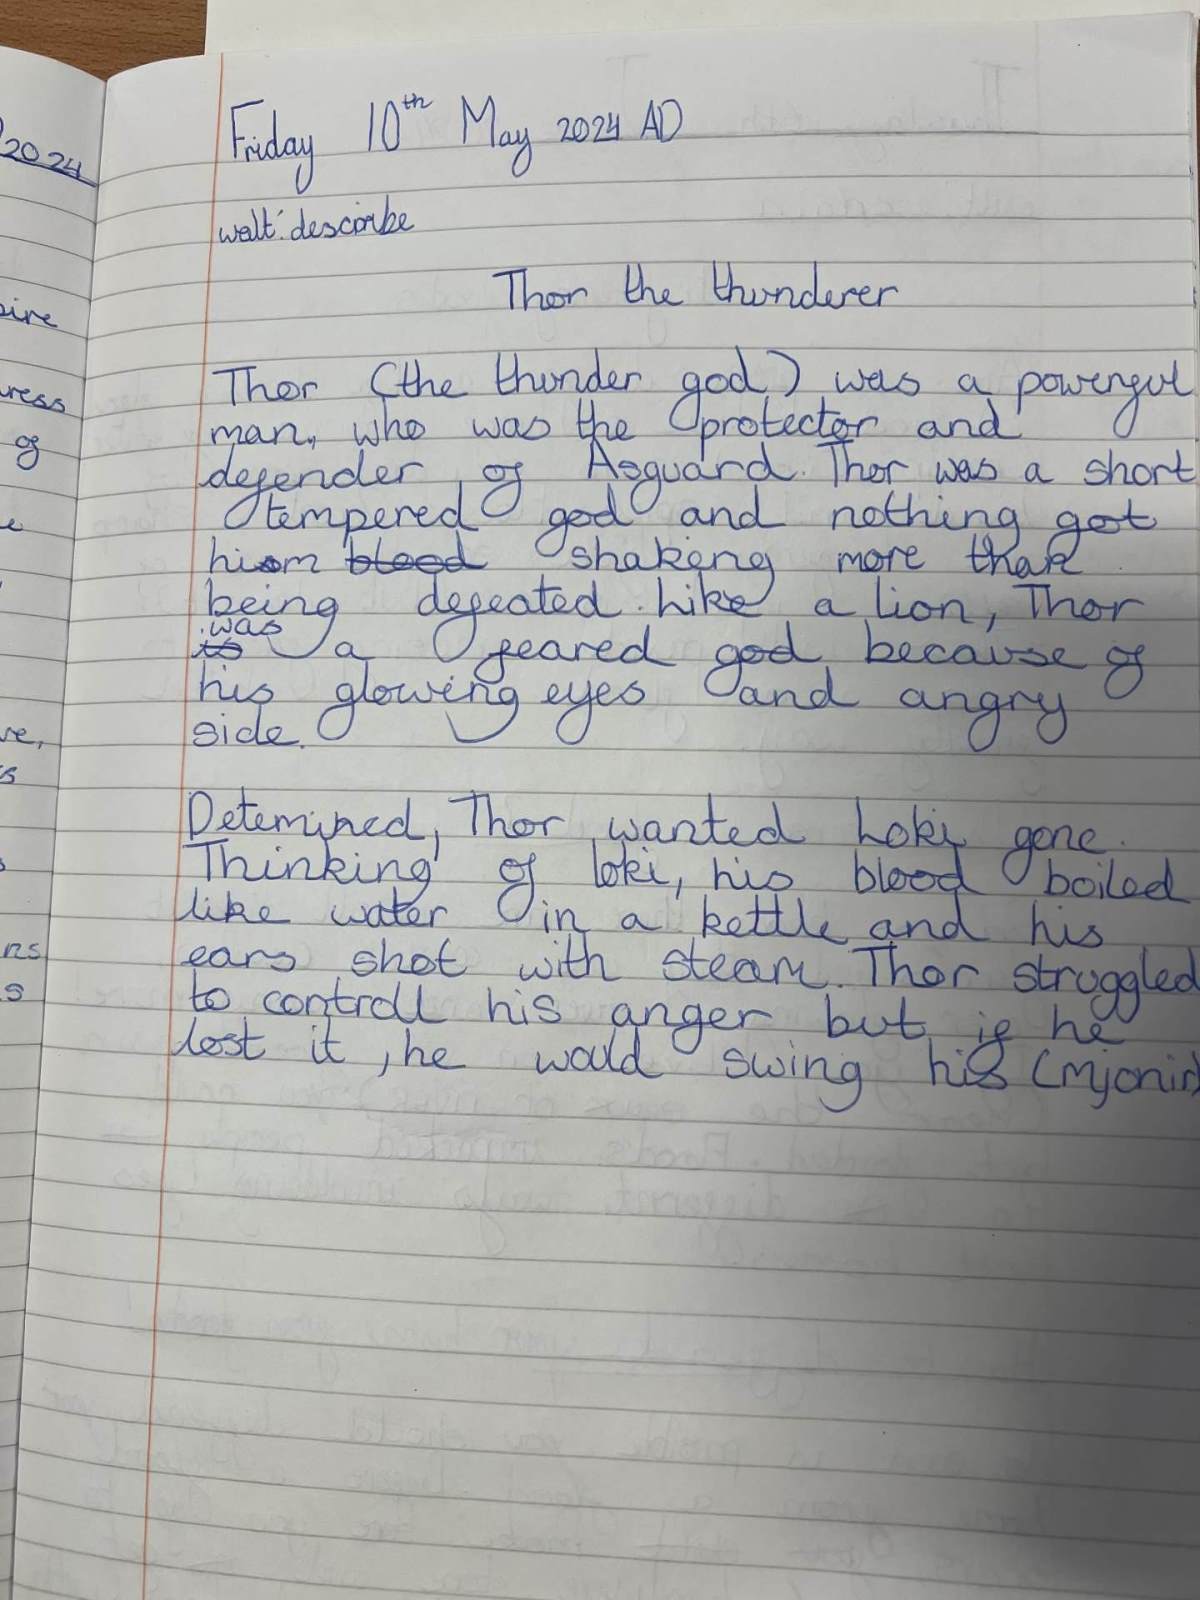 2024
Friday 10th May 2024 AD
walt: descirbe
Thor the thunderer
ress
of
Thor (the thunder god) was a powerful
man, who was the protector and
defender of Asguard. Thor was a short
tempered god and nothing got
him blood shaking more than
being defeated. Like a lion, Thor
was
is a feared god because of
his glowing eyes and angry
side.
Detemined, Thor wanted Loki gone.
Thinking of loki, his blood boiled
like water in a kettle and his
ears shot with steam. Thor struggled
to controll his anger but if he
lost it, he would swing his (Mjonir)